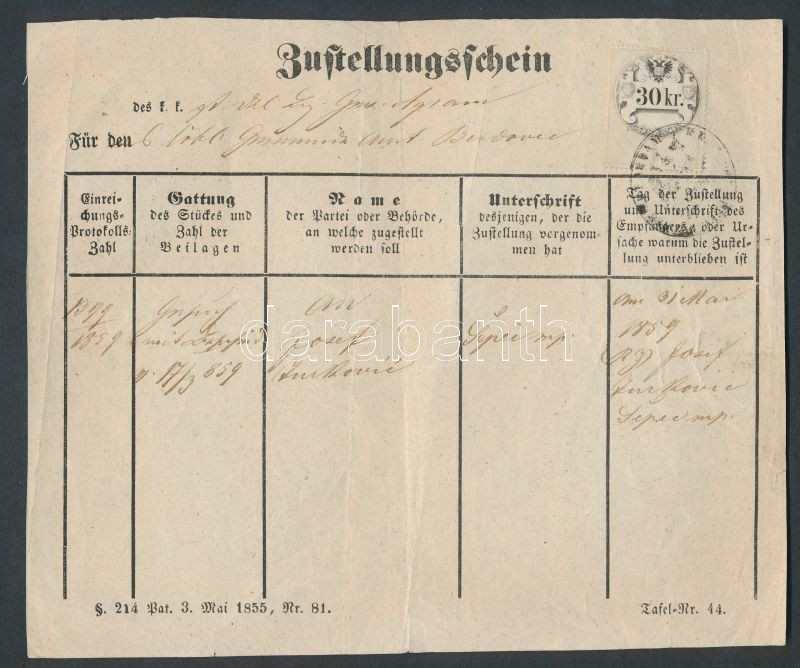 Zustellungsschein
des k. k. Agram
Für den löbl Amt Berdovec
30 kr.
Einrei-
chungs-
Protokolls-
Zahl
Gattung
des Stückes und
Zahl der
Beilagen
Name
der Partei oder Behörde,
an welche zugestellt
werden soll
Unterschrift
desjenigen, der die
Zustellung vorgenom-
men hat
Tag der Zustellung
und Unterschrift des
Empfängers oder Ur-
sache warum die Zustel-
lung unterblieben ist
1859
Gesuch
mit
17/3 859
An
Josef
Jurković
Sepec mp.
Am 31 Mai
1859
Josef
Jurkovic
Sepec mp.
darabanth
§. 214 Pat. 3. Mai 1855, Nr. 81.
Tafel-Nr. 44.